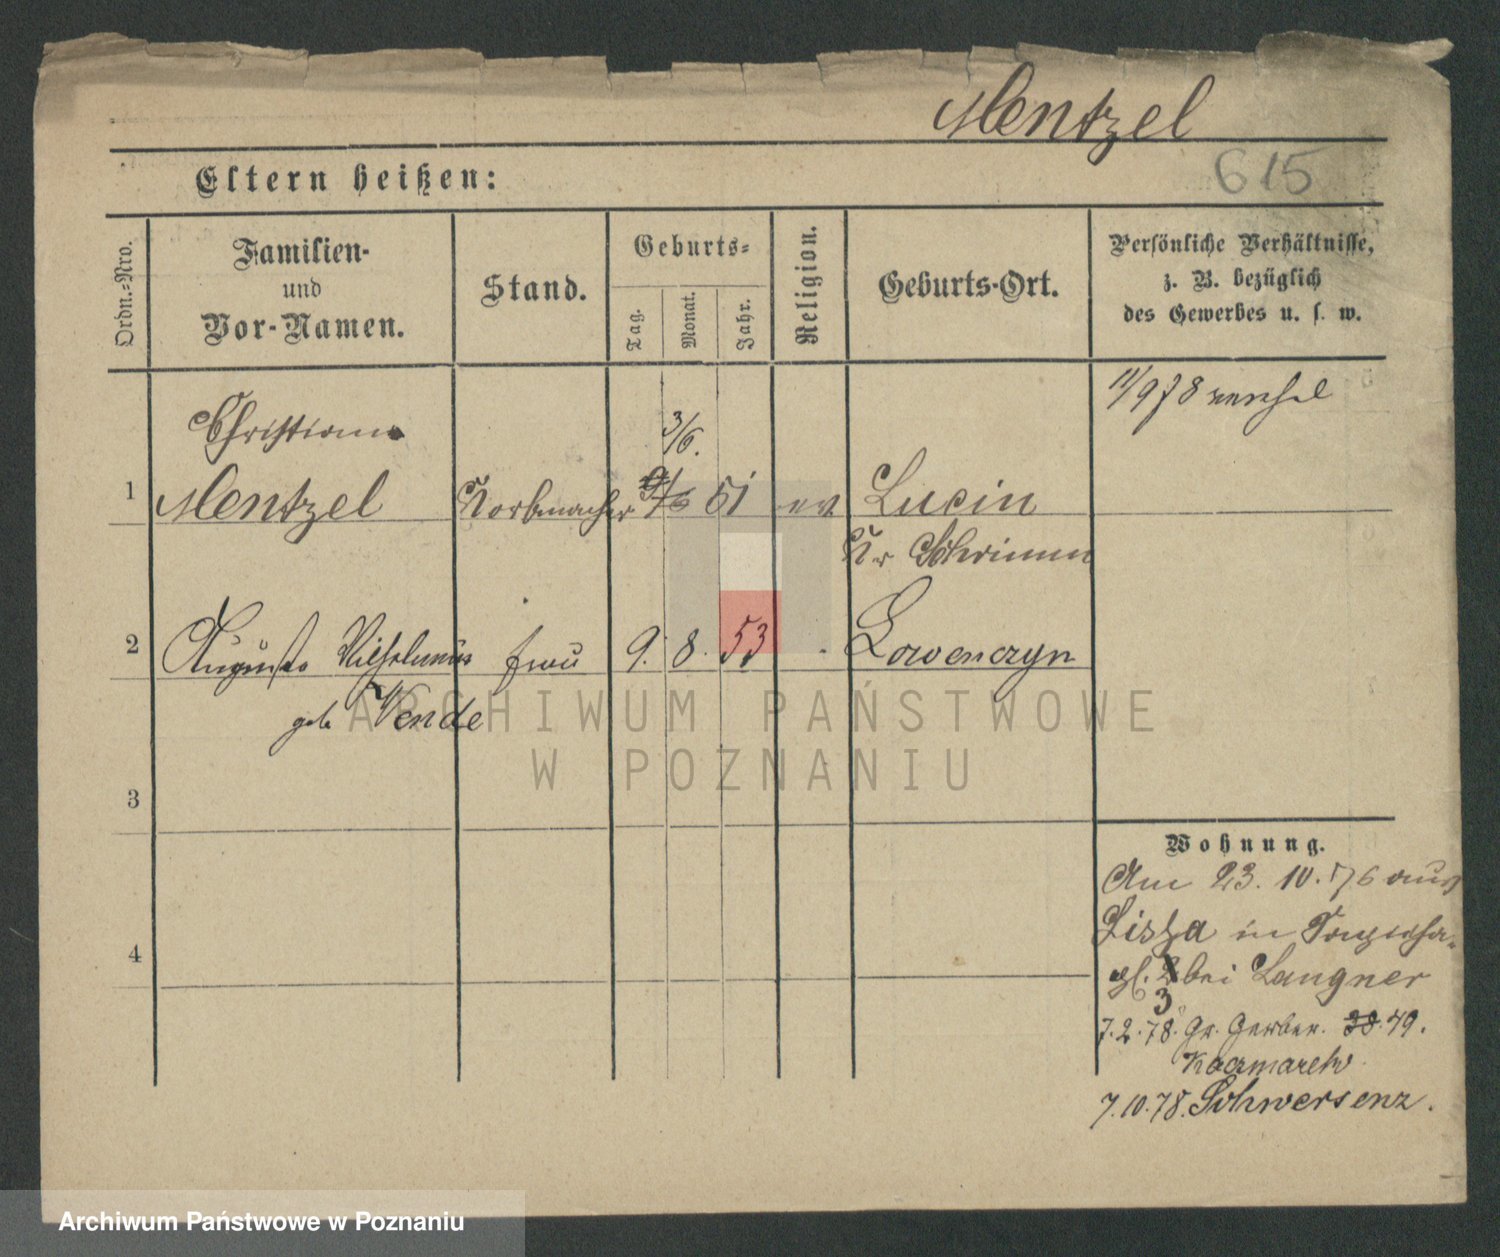 Mentzel
615
Eltern heißen:
Ordn.-Nro.
Familien-
und
Vor-Namen.
Stand.
Geburts-
Tag.
Monat.
Jahr.
Religion.
Geburts-Ort.
Persönliche Verhältnisse,
z. B. bezüglich
des Gewerbes u. s. w.
11/9 78
Christian
3/6.
1 Mentzel Korbmacher 51 ev Lucin
Kr Schrimm
2 Auguste Wilhelmine Frau 9. 8. 53 Lowenczyn
geb Wende
3
4
Wohnung.
Am 23. 10. 76 aus
Lissa in
2 bei Langner
3
7. 2. 78. Gr. Gerber. 38. 49.
Kaczmarek
7. 10. 78. Schwersenz.
ARCHIWUM PAŃSTWOWE
W POZNANIU
Archiwum Państwowe w Poznaniu